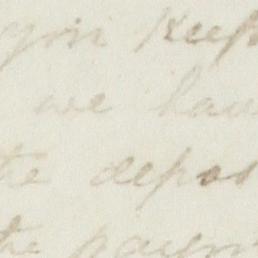 you keep
we hav
the depos
the paym